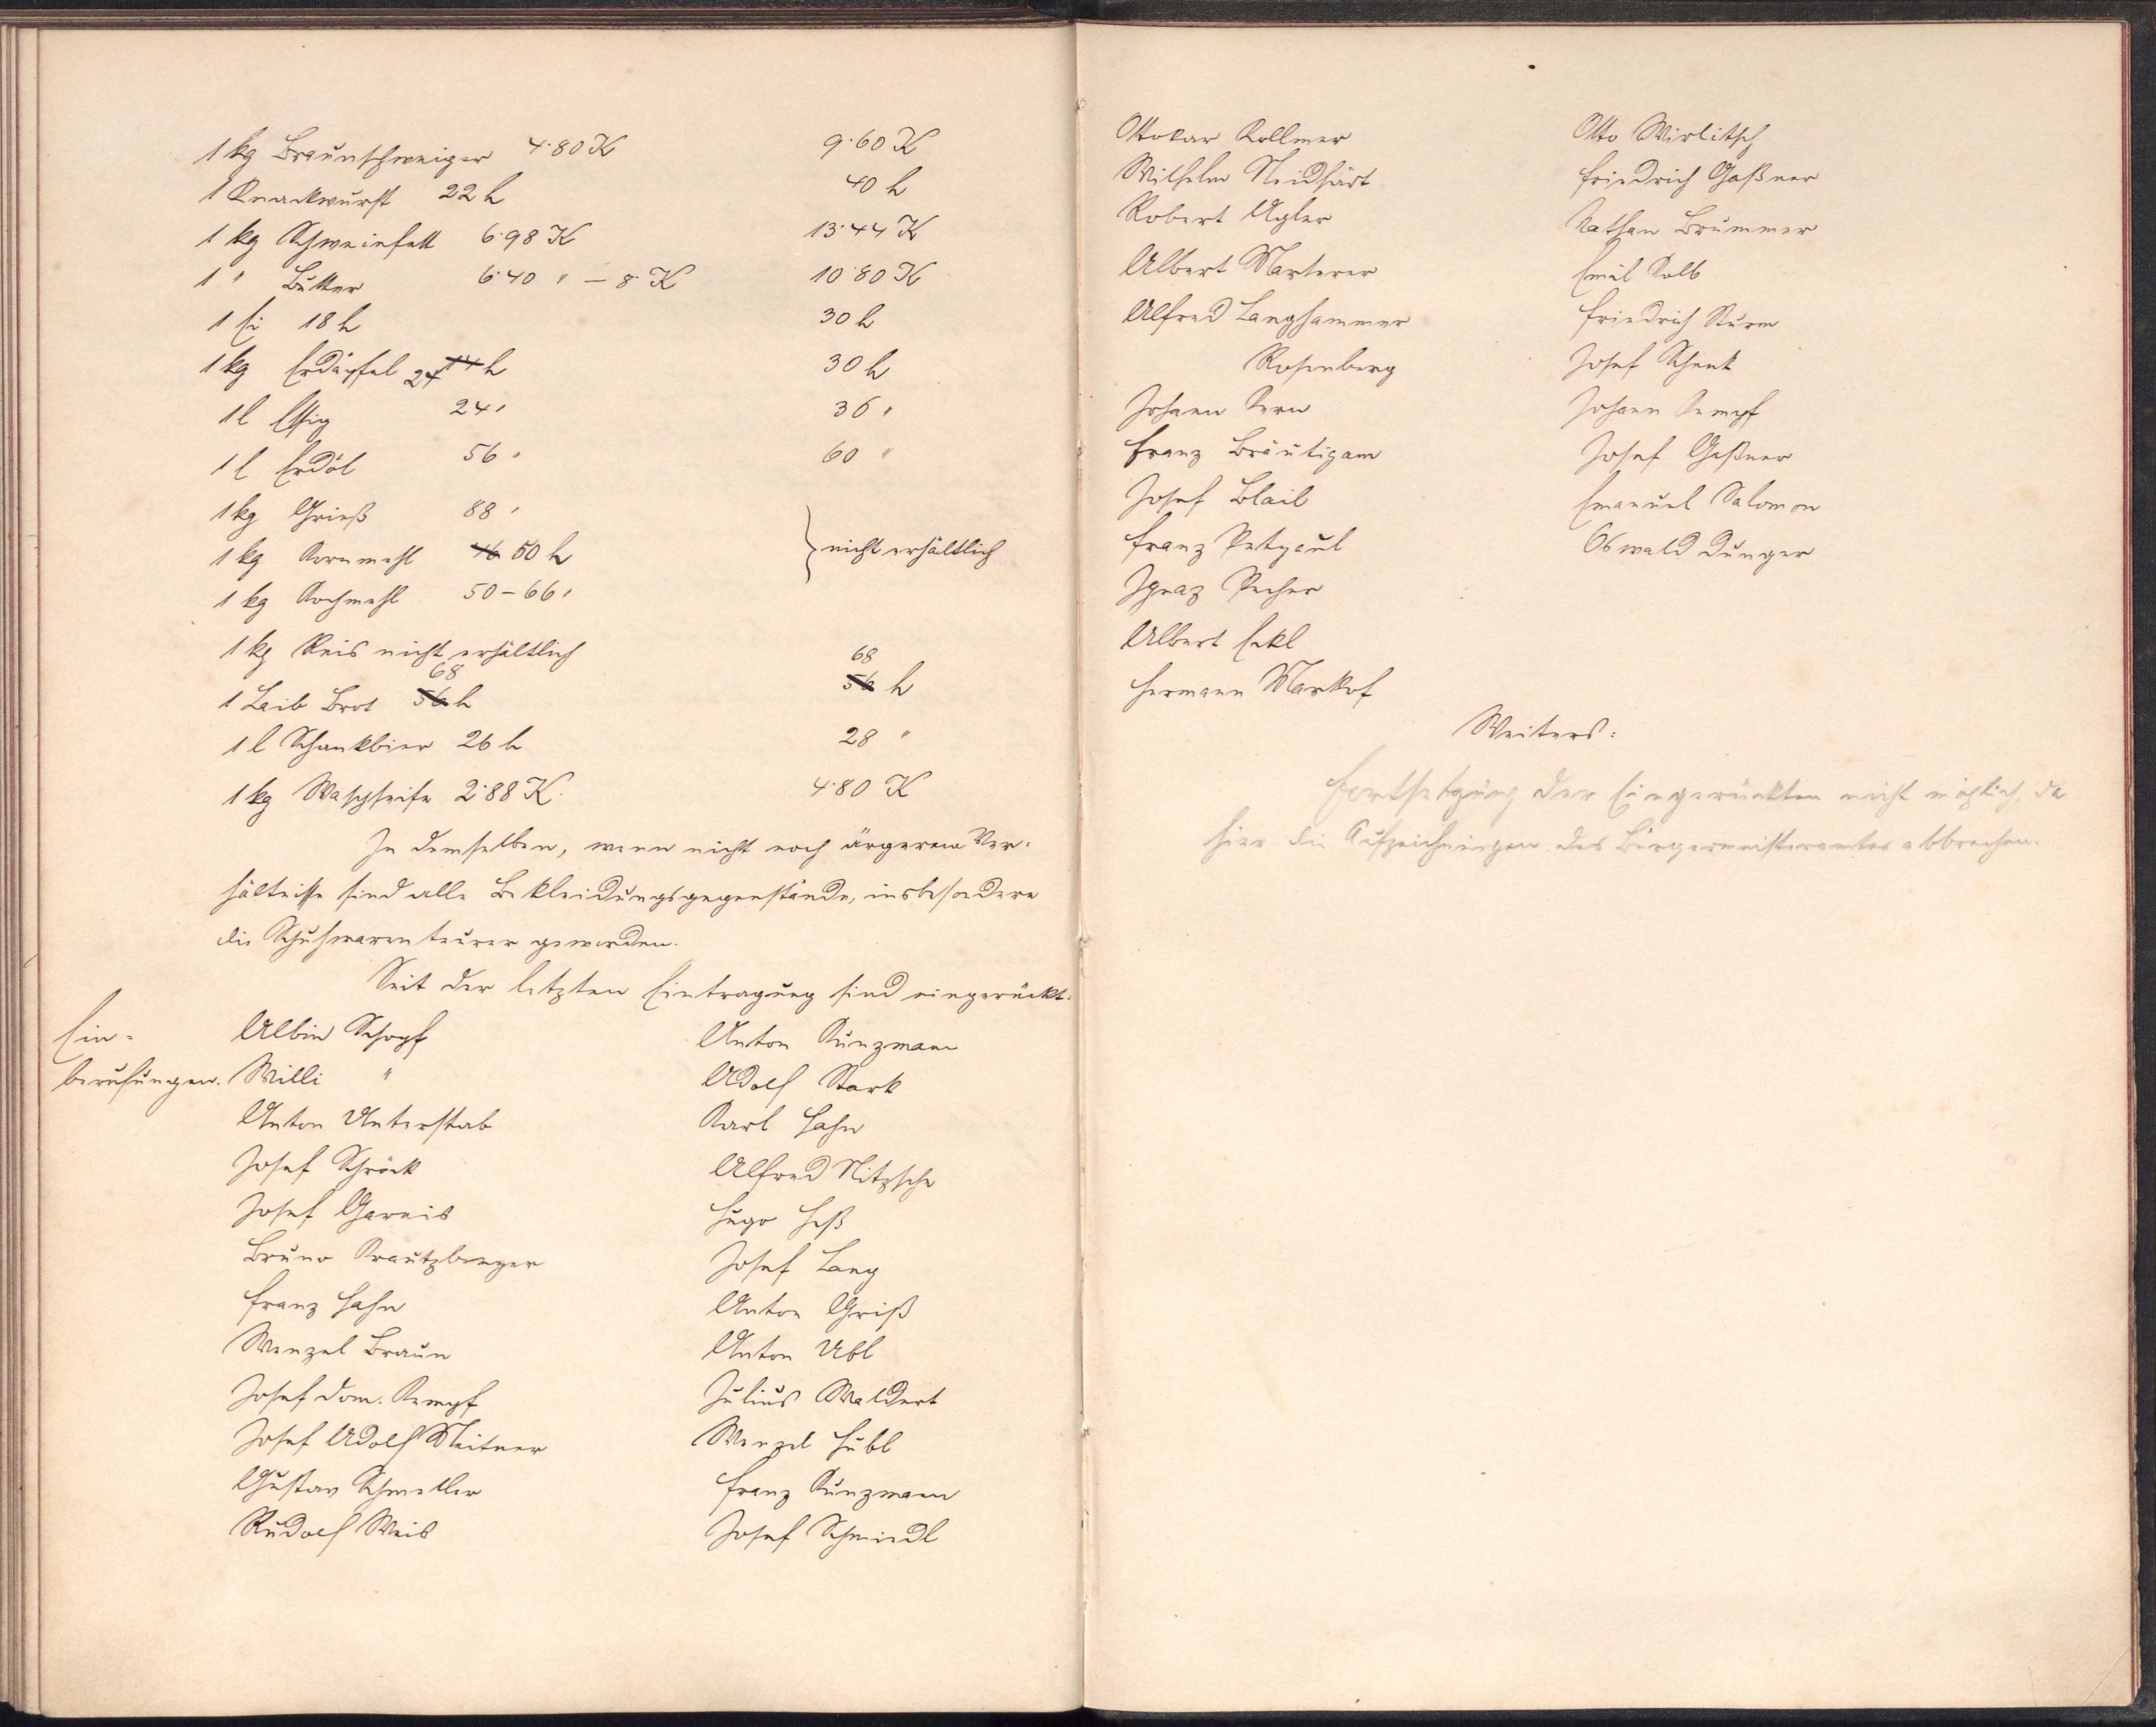 1 kg Braunschweiger 4·80 K 9·60 K
1 Knackwurst 22 h 40 h
1 kg Schweinfett 6·98 K 13·44 K
1 " Butter 6·40 " – 8· K 10·80 K
1 Ei 18 h 30 h
1 kg Erdäpfel 24 14 h 30 h
1 l Essig 24 " 36 "
1 l Erdöl 56 " 60 "
1 kg Grieß 88 "
1 kg Kornmehl 46 50 h } nicht erhältlich
1 kg Kochmehl 50–66 "
1 kg Reis nicht erhältlich
68 68
1 Laib Brot 56 h 56 h
1 l Schankbier 26 h 28 "
1 kg Waschseife 2·88 K. 4·80 K
In demselben, wenn nicht noch ärgerem Ver-
hältnisse sind alle Bekleidungsgegenstände, insbesondere
die Schuhwaren teurer geworden.
Seit der letzten Eintragung sind eingerückt:
Ein- Albin Schopf Anton Kunzmann
berufungen. Willi " Adolf Stark
Anton Unterstab Karl Hahn
Josef Schröck Alfred Nitzsche
Josef Gareis Hugo Heß
Bruno Krautzberger Josef Lang
Franz Hahn Anton Grieß
Wenzel Braun Anton Ubl
Josef Dom. Kempf Julius Waldert
Josef Adolf Meitner Wenzel Hübl
Gustav Schmeller Franz Kunzmann
Rudolf Weis Josef Schmiedl
Ottokar Kollmer Otto Wirlitsch
Wilhelm Neidhart Friedrich Gaßner
Robert Ugler Nathan Brummer
Albert Marterer Emil Kolb
Alfred Langhammer Friedrich Sturm
Rosenberg Josef Schenk
Johann Kern Johann Kempf
Franz Bräutigam Josef Geßner
Josef Blail Emanuel Salomon
Franz Petzpaul Oswald Dunger
Ignaz Pecher
Albert Eckl
Hermann Markof
Weiters:
Fortsetzung der Eingerückten nicht möglich, da
hier die Aufzeichnungen des Bürgermeisteramtes abbrechen.